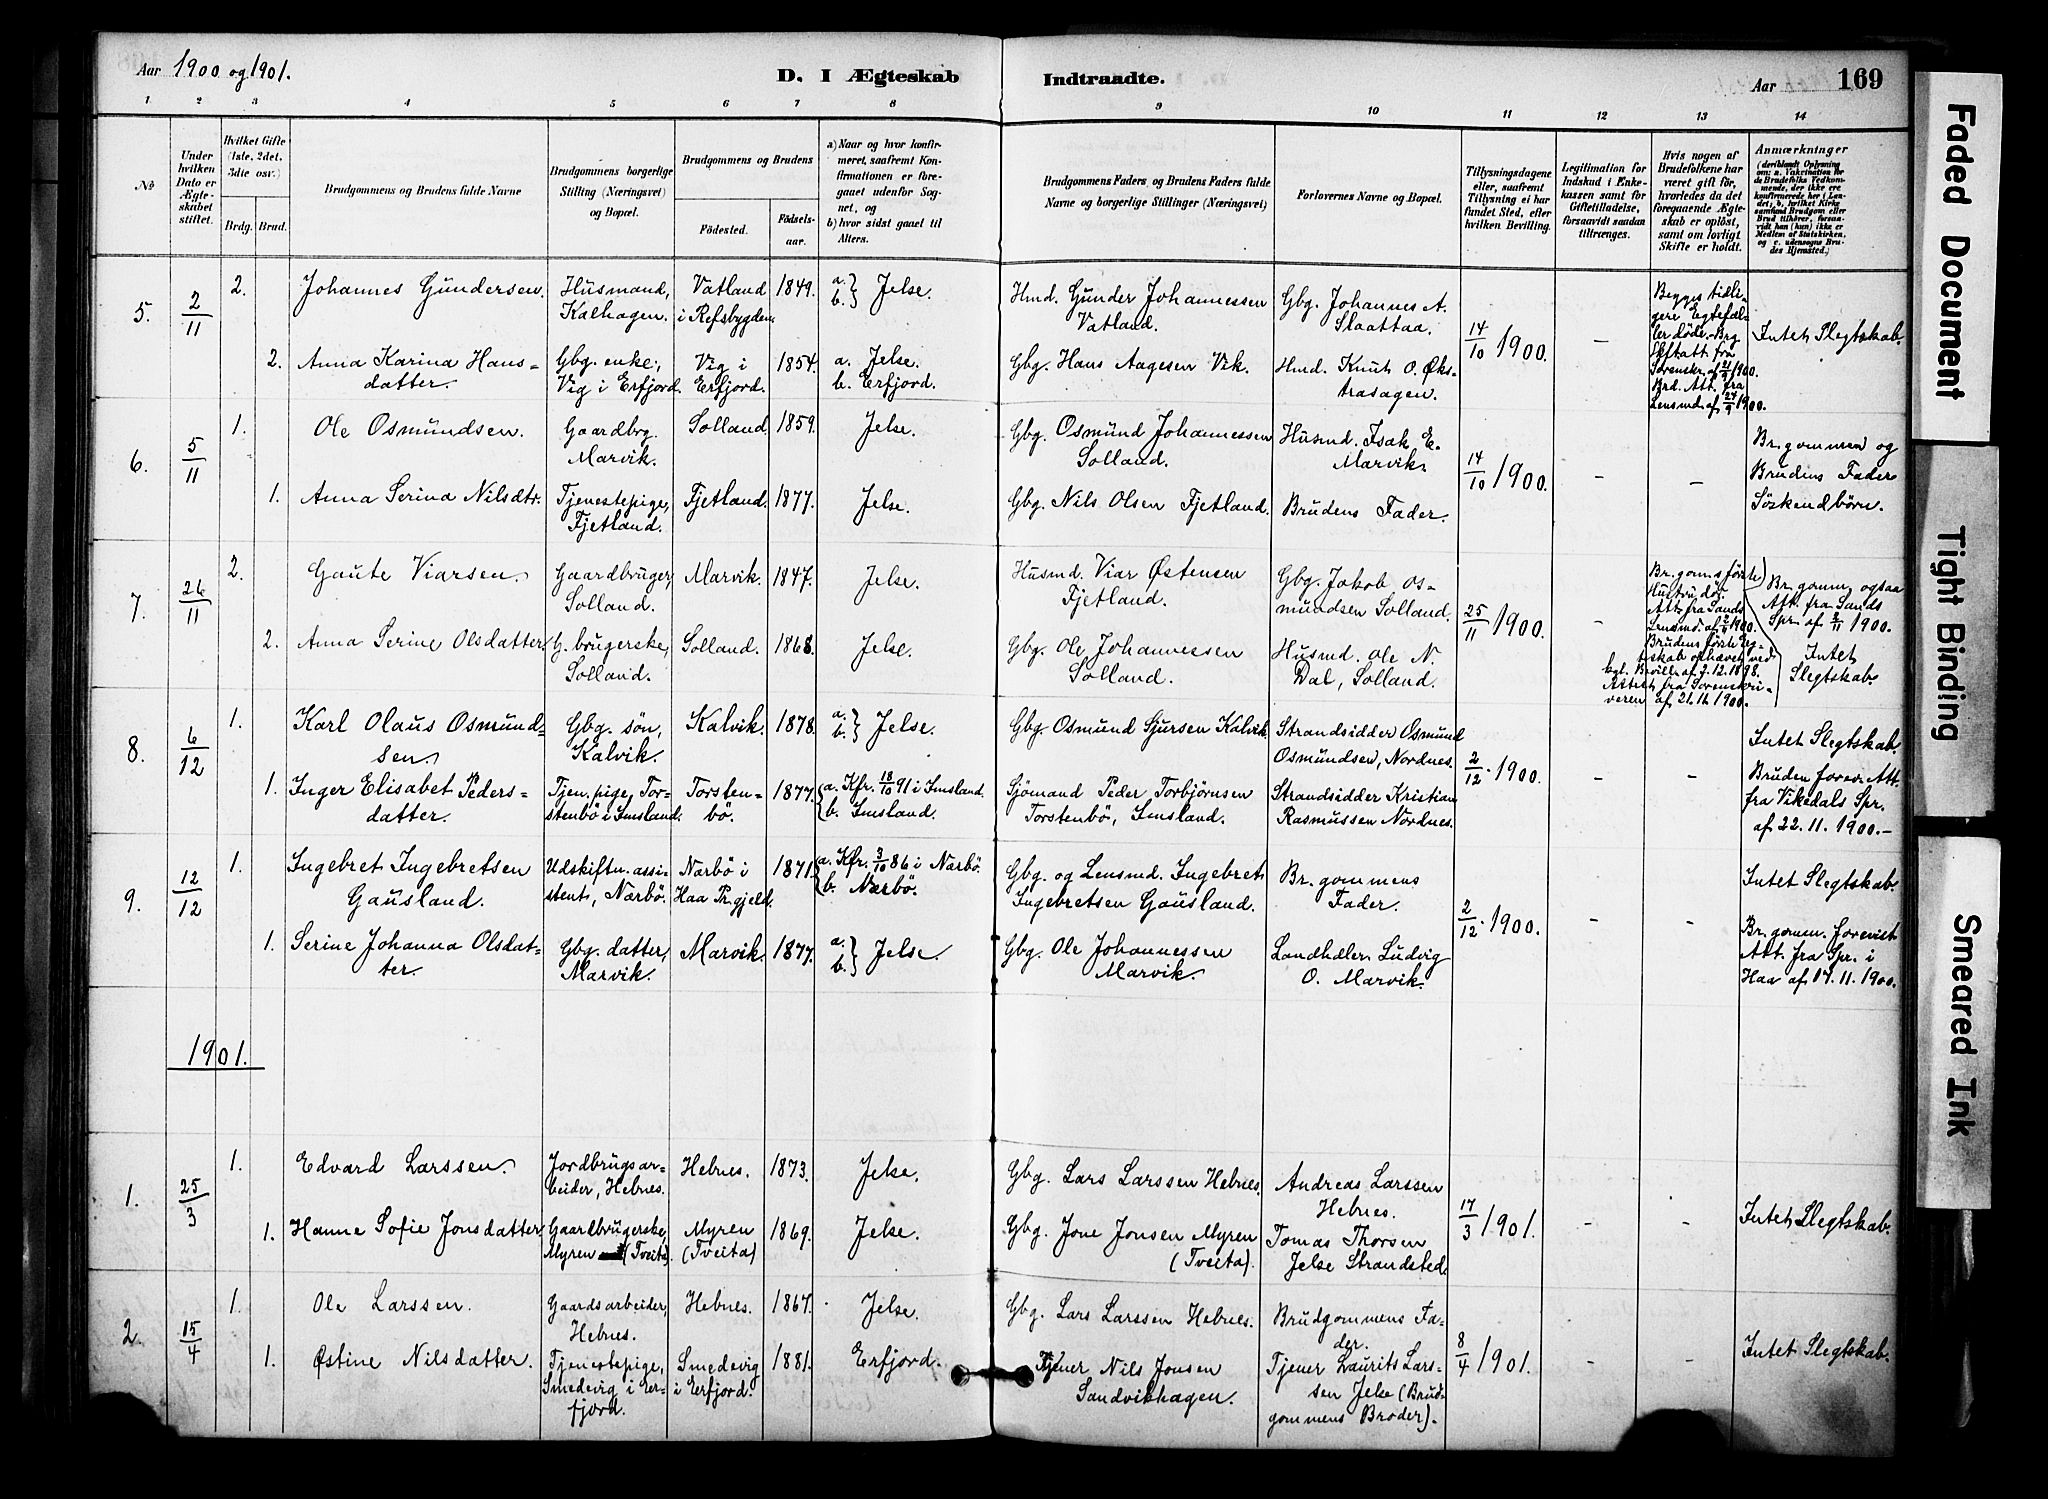 Aar 1900 og 1901.
D. I Ægteskab Indtraadte.
Aar 169
1 2 3 4 5 6 7 8 9 10 11 12 13 14
No
Under hvilken Dato er Ægteskabet stiftet.
Hvilket Gifte (1ste, 2det, 3die osv.)
Brdg. Brud.
Brudgommens og Brudens fulde Navne
Brudgommens borgerlige Stilling (Næringsvei) og Bopæl.
Brudgommens og Brudens
Födested.
Födselsaar.
a) Naar og hvor konfirmeret, saafremt Konfirmationen er foregaaet udenfor Sognet, og
b) hvor sidst gaaet til Alters.
Brudgommens Faders og Brudens Faders fulde Navne og borgerlige Stillinger (Næringsvei)
Forlovernes Navne og Bopæl.
Tillysningsdagene eller, saafremt Tillysning ei har fundet Sted, efter hvilken Bevilling.
Legitimation for Indskud i Enkekassen samt for Giftetilladelse, forsaavidt saadan tiltrænges.
Hvis nogen af Brudefolkene har været gift för, hvorledes da det foregaaende Ægteskab er oplöst, samt om lovligt Skifte er holdt.
Anmærkninger
(deriblandt Oplysning om: a. Vakcination for de Brudefolks Vedkommende, der ikke ere konfirmerede her i Landet; b. hvilket Kirkesamfund Brudgom eller Brud tilhörer, forsaavidt han (hun) ikke er Medlem af Statskirken, og c. udensogns Brudes Hjemsted.)
5. 2/11 2. Johannes Gundersen. Husmand, Kalhagen. Vatland i Refsbygden. 1849. a. b. } Jelse. Hmd. Gunder Johannessen Vatland. Gbg. Johannes A. Slaattaa. 14/10 1900. —
Begges tidligere Egtefæller døde. Brg Skftatt fra Sorenskr. af 21/9 1900. Brd. Att. fra Lensmd. af 24/9 1900.
Intet Slegtskab.
2. Anna Karina Hansdatter. Gbg. enke, Vig i Erfjord. Vig i Erfjord. 1854. a. Jelse. b. Erfjord. Gbg. Hans Aagesen Vik. Hmd. Knut O. Økstrasagen.
6. 5/11 1. Ole Osmundsen. Gaardbrg. Marvik. Solland. 1859. Jelse. Gbg. Osmund Johannessen Solland. Husmd. Isak E. Marvik. 14/10 1900. — —
Br.gommen og Brudens Fader Söskendbörn.
1. Anna Serina Nilsdtr. Tjenestepige, Fjetland. Fjetland. 1877. Jelse. Gbg. Nils Olsen Fjetland. Brudens Fader.
7. 26/11 2. Gaute Viarsen. Gaardbruger, Solland. Marvik. 1847. Jelse. Husmd. Viar Østensen Fjetland. Gbg. Jakob Osmundsen Solland. 25/11 1900. —
Br.goms første Hustru død Att. fra Sands Lensmd. af 1900. Brudens første Egteskab ophævet ved kgl. Bevill. af 7.12.1898. Attest fra Sorenskriveren af 21.11.1900.
Br.gomm. ogsaa Att. fra Sands Spr. af 2/11 1900.
Intet Slegtskab.
2. Anna Serine Olsdatter. G. brugerske, Solland. Solland. 1868. Jelse. Gbg. Ole Johannessen Solland. Husmd. Ole N. Dal, Solland.
8. 6/12 1. Karl Olaus Osmundsen. Gbg. søn, Kalvik. Kalvik. 1878. a. b. } Jelse. Gbg. Osmund Sjursen Kalvik. Strandsidder Osmund Osmundsen, Nordnes. 2/12. 1900. — —
Intet Slegtskab.
Bruden forev. Att. fra Vikedals Spr. af 22.11.1900.—
1. Inger Elisabet Pedersdatter. Tjen. pige, Torstenbö i Imsland. Torstenbö. 1877. a. Kfr. 18/10 91 i Imsland. b. Imsland. Sjömand Peder Torbjörnsen Torstenbö, Imsland. Strandsidder Kristian Rasmussen Nordnes.
9. 12/12 1. Ingebret Ingebretsen Gausland. Udskiftn. assistent, Nærbö. Nærbö i Haa Pr.gjeld. 1871. a. Kfr. 3/10 86 i Nærbö. b. Nærbö. Gbg. og Lensmd. Ingebret Ingebretsen Gausland. Br.gommens Fader. 2/12. 1900. — —
Intet Slegtskab.
Br.gomm. forevist Att. fra Spr. i Haa af 17.11.1900.
1. Serine Johanna Olsdatter. Gbg. datter, Marvik. Marvik. 1877. a. b. } Jelse. Gbg. Ole Johannessen Marvik. Landhdler. Ludvig O. Marvik.
1901.
1. 25/3 1. Edvard Larssen. Jordbrugsarbeider, Hebnes. Hebnes. 1873. Jelse. Gbg. Lars Larssen Hebnes. Andreas Larssen Hebnes. 17/3 1901. — — Intet Slegtskab.
1. Hanne Sofie Jonsdatter. Gaardbrugerske, Myren (Tveita). Myren (Tveita) 1869. Jelse. Gbg. Jone Jonsen Myren (Tveita). Tomas Thorsen Jelse Strandsted.
2. 15/4 1. Ole Larssen. Gaardsarbeider, Hebnes. Hebnes. 1867. Jelse. Gbg. Lars Larssen Hebnes. Brudgommens Fader. 8/4 1901. — — Intet Slegtskab.
1. Østine Nilsdatter. Tjenestepige, Smedevig i Erfjord. Smedevig i Erfjord. 1881. Erfjord. Tjener Nils Jonsen Sandvikhagen. Tjener Laurits Larssen Jelse (Brudgommens Broder).
Faded Document
Tight Binding
Smeared Ink